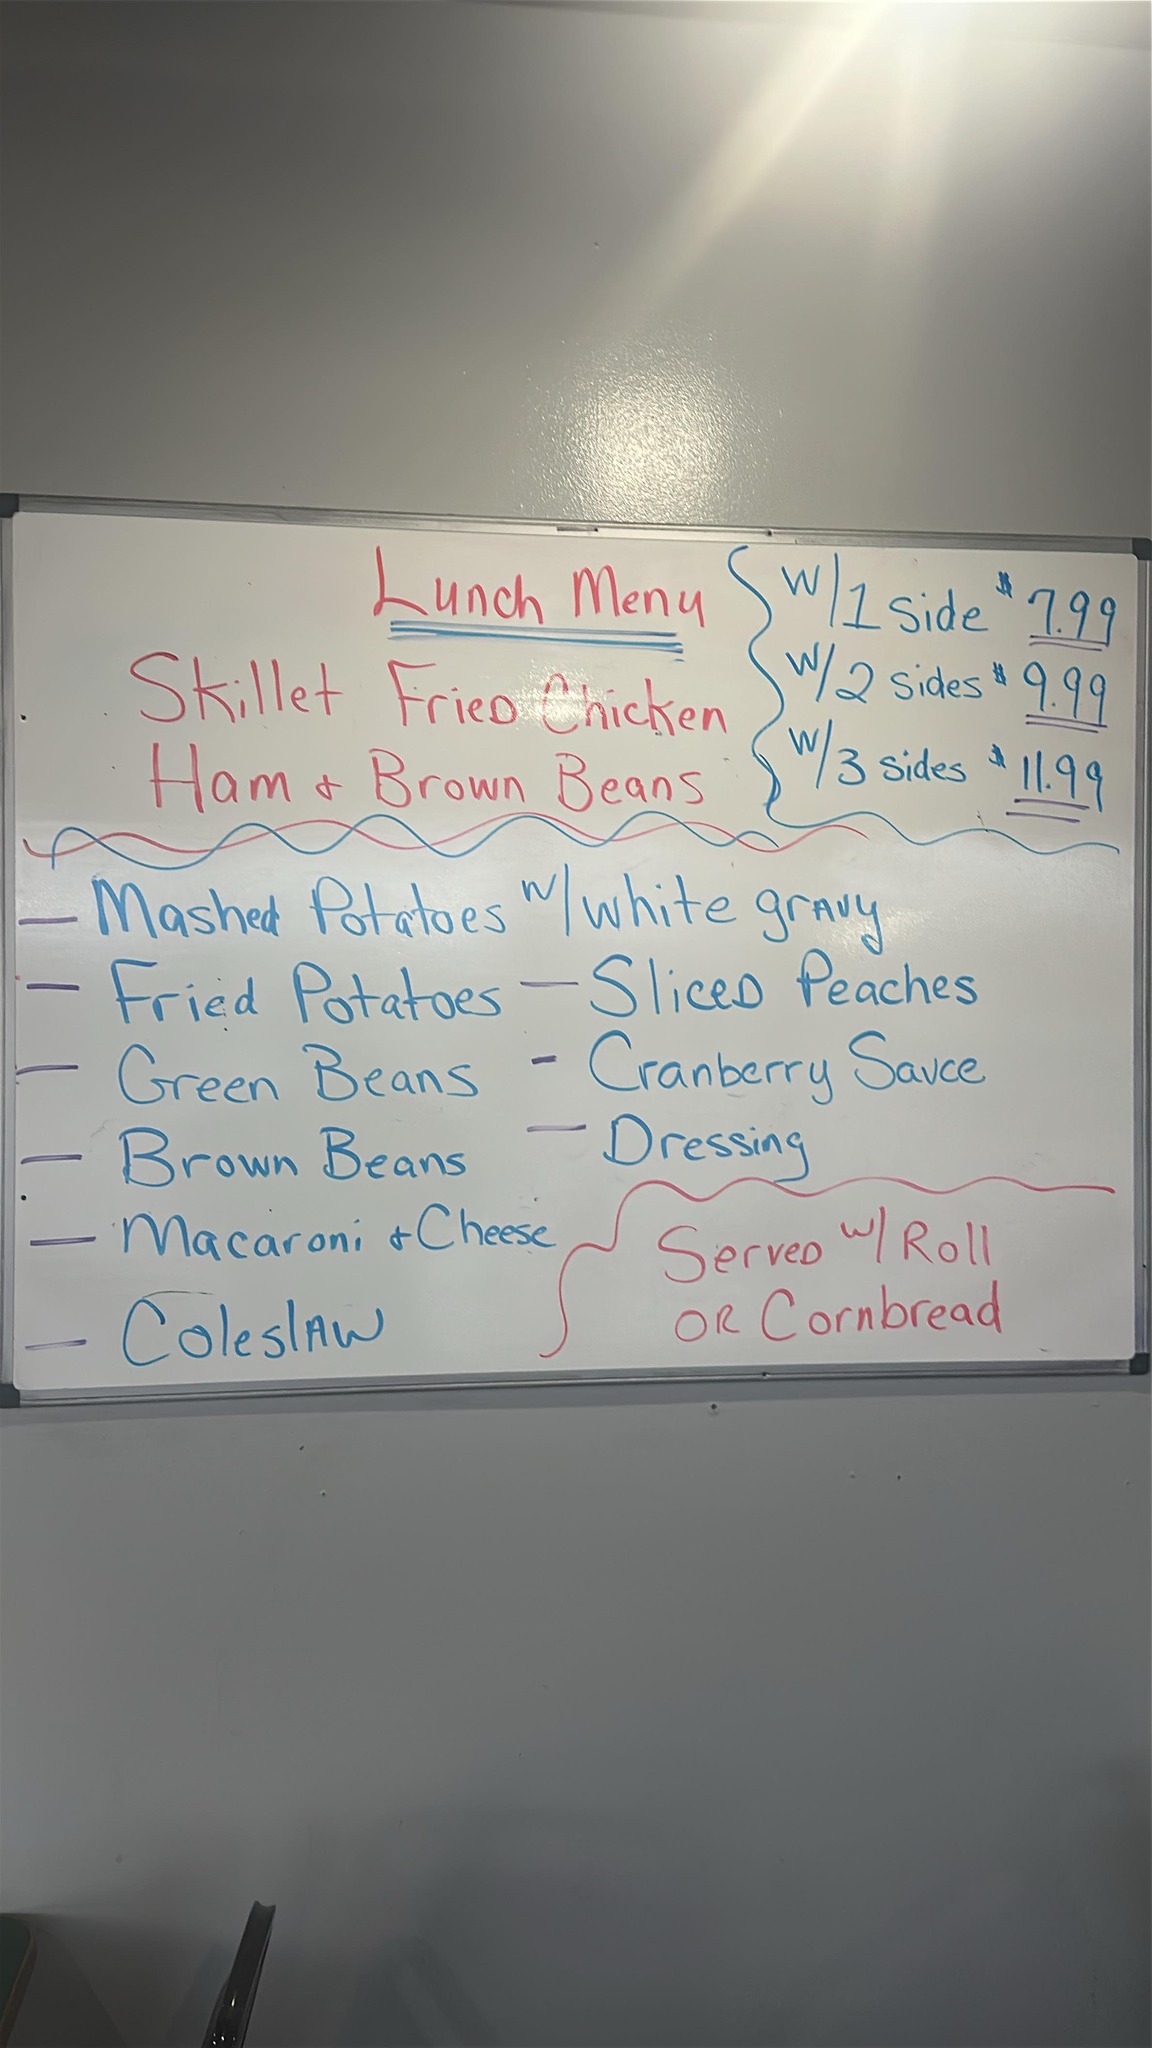 Lunch Menu
Skillet Fried Chicken
Ham & Brown Beans
w/1 side $7.99
w/2 sides $9.99
w/3 sides $11.99
— Mashed Potatoes w/white gravy
— Fried Potatoes
— Green Beans
— Brown Beans
— Macaroni & Cheese
— Coleslaw
— Sliced Peaches
- Cranberry Sauce
— Dressing
Served w/ Roll
OR Cornbread